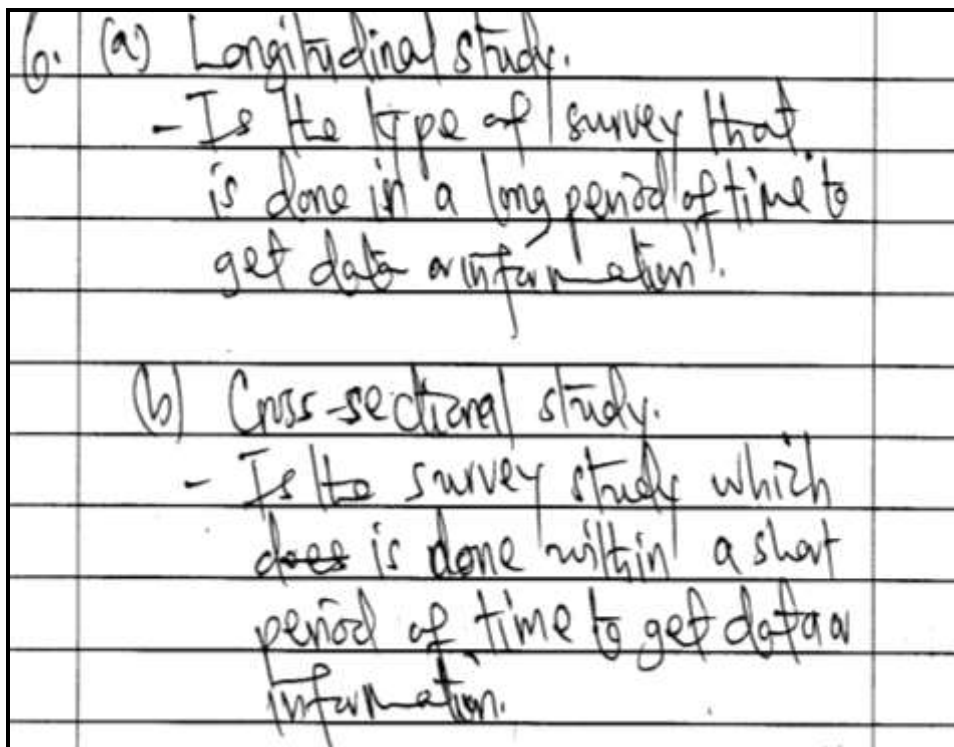 6. (a) Longitudinal study.
- Is the type of survey that
is done in a long period of time to
get data or information.
(b) Cross-sectional study.
- Is the survey study which
does is done within a short
period of time to get data or
information.